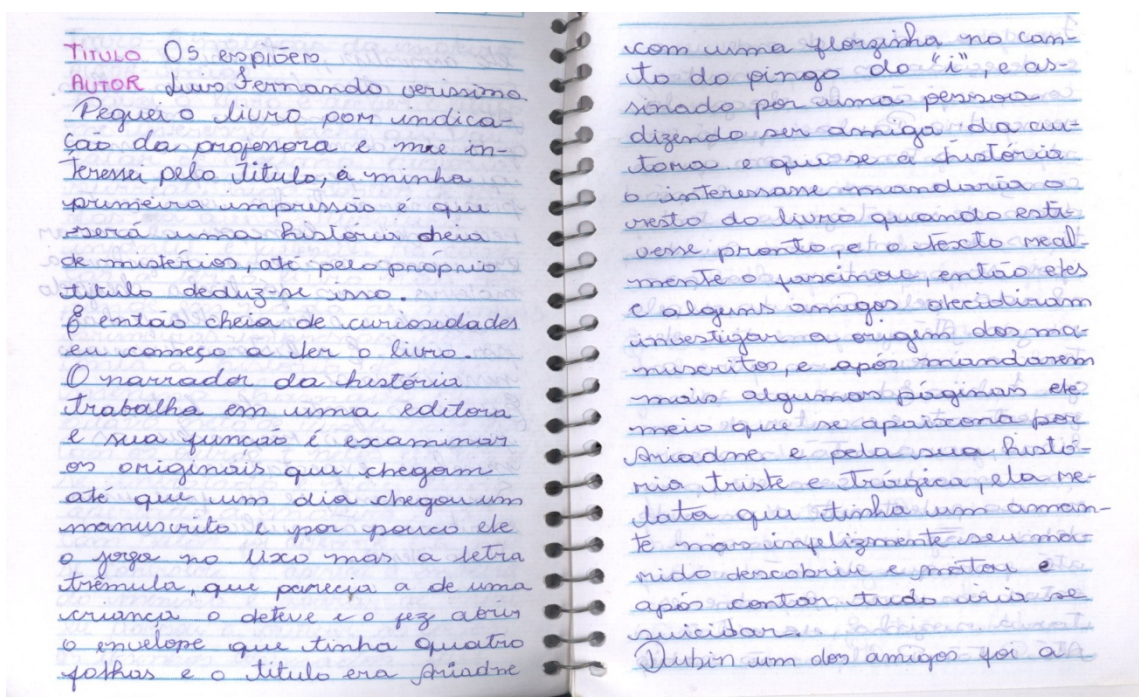 TITULO Os espiões
AUTOR Luis Fernando verissimo
Peguei o livro por indica-
ção da professora e me in-
teressei pelo título, a minha
primeira impressão é que
será uma história cheia
de mistérios, até pelo próprio
titulo deduz-se isso.
E então cheia de curiosidades
eu começo a ler o livro.
O narrador da história
trabalha em uma editora
e sua função é examinar
os originais que chegam
até que um dia chegou um
manuscrito e por pouco ele
o joga no lixo mas a letra
trêmula, que pareçia a de uma
criança o deteve e o fez abrir
o envelope que tinha quatro
folhas e o titulo era Ariadne
com uma florzinha no can-
to do pingo do "i", e as-
sinado por uma pessoa
dizendo ser amiga da au-
tora e que se a história
o interessasse mandaria o
resto do livro quando esti-
vesse pronto, e o texto real-
mente o fascinou, então eles
e alguns amigos decidiram
investigar a origem dos ma-
nuscritos, e após mandarem
mais algumas páginas ele
meio que se apaixona por
Ariadne e pela sua histó-
ria triste e trágica, ela re-
lata que tinha um aman-
te mas infelizmente seu ma-
rido descobriu e matou e
após contar tudo iria se
suicidar.
Dubin um dos amigos foi a